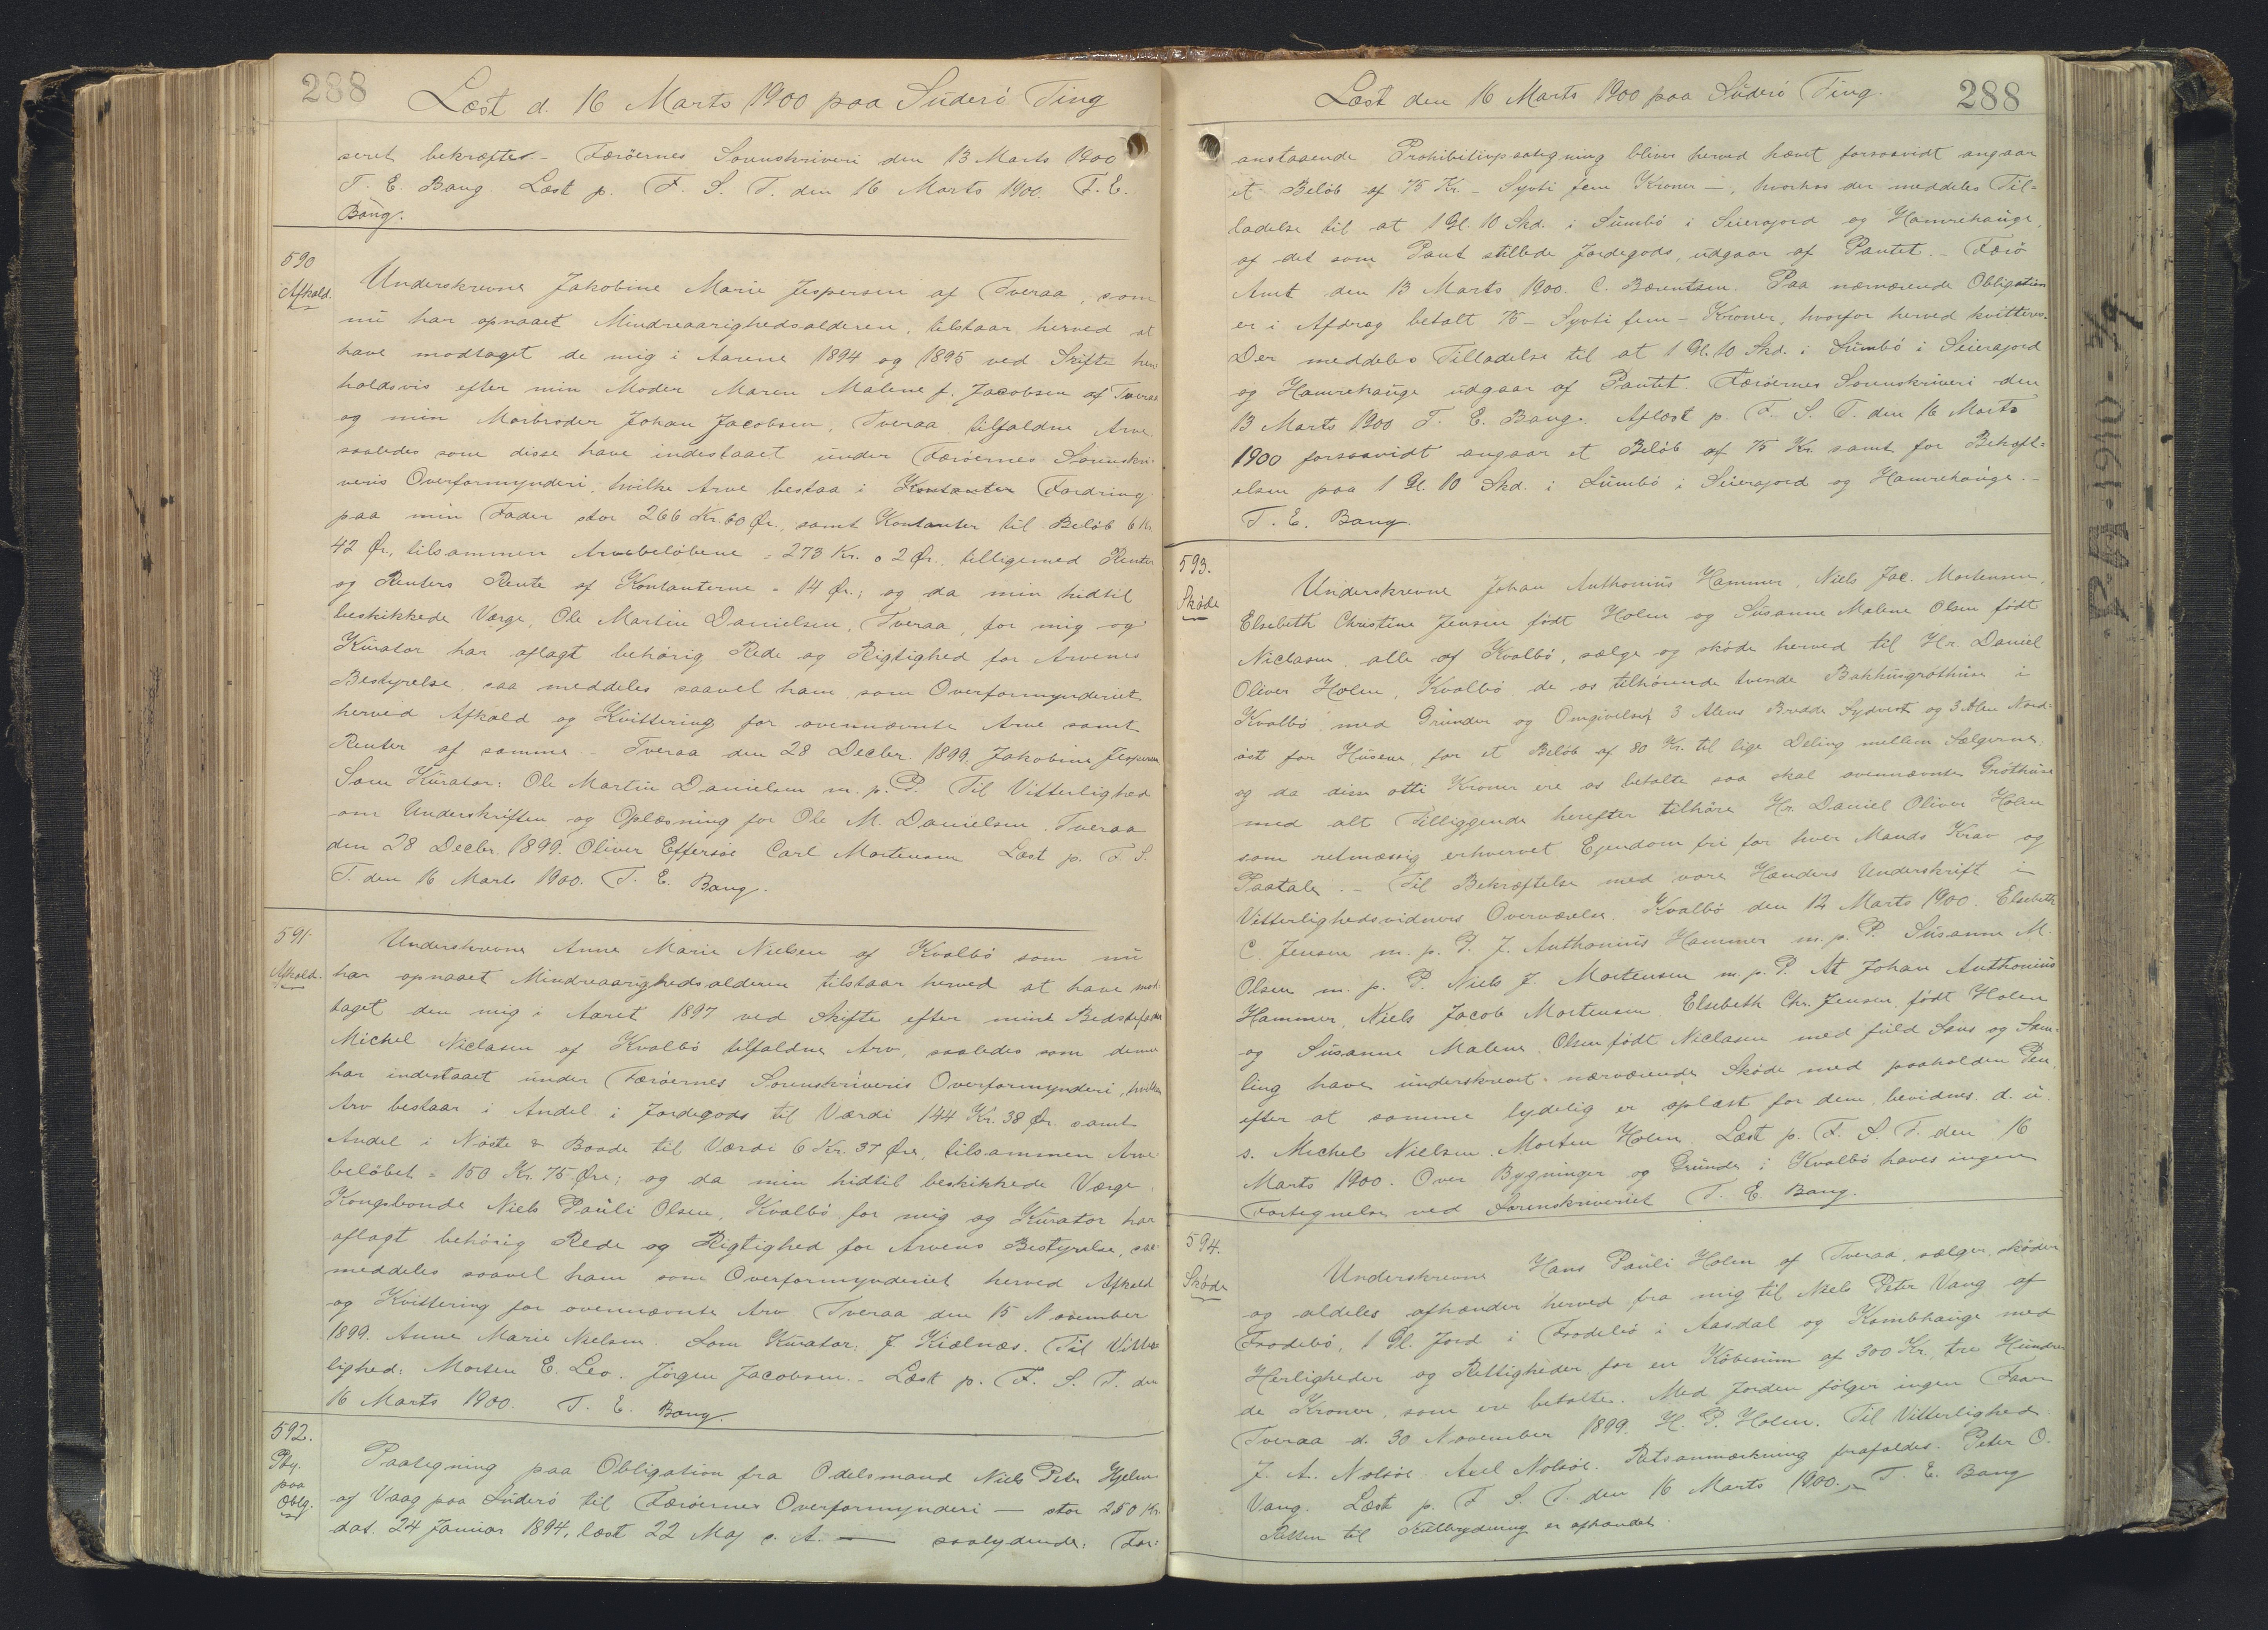 288
Læst d. 16 Marts 1900 paa Süderö Ting
seret bekræftes - Færöernes Sorenskriveri den 13 Marts 1900
T. E. Bang. Læst p. F. S. T. den 16 Marts 1900. T. E.
Bang.
590
Afkald.
Underskrevne Jakobine Marie Jespersen af Tveraa, som
nu har opnaaet Mindreaarighedsalderen, tilstaar herved at
have modtaget de mig i Aarene 1894 og 1895 ved Skifte hen
holdsvis efter min Moder Maren Malene f. Jacobsen af Tveraa
og min Morbroder Johan Jacobsen, Tveraa tilfaldne Arve
saaledes som disse have indestaaet under Færöernes Sorenskri-
veris Overformynderi, hvilke Arve bestaa i Kontanter Fordring
paa min Fader stor 266 Kr. 60 Ør., samt Kontanter til Beløb 6 Kr.
42 Ør., tilsammen Arvebeløbene = 273 Kr. 02 Ør., tilligemed Renter
og Renters Rente af Kontanterne = 14 Ør.; og da min hidtil
beskikkede Værge, Ole Martin Danielsen, Tveraa, for mig og
Kurator har aflagt behørig Rede og Rigtighed for Arvenes
Bestyrelse, saa meddeles saavel ham som Overformynderiet
herved Afkald og Kvittering for ovennævnte Arve samt
Renter af samme. - Tveraa den 28 Decbr. 1899. Jakobine Jespersen
Som Kurator: Ole Martin Danielsen m. p. P. Til Vitterlighed
om Underskriften og Oplæsning for Ole M. Danielsen. Tveraa
den 28 Decbr. 1899. Oliver Effersøe Carl Mortensen Læst p. F. S.
T. den 16 Marts 1900. T. E. Bang.
591.
Afkald.
Underskrevne Anna Marie Nielsen af Kvalbö som nu
har opnaaet Mindreaarighedsalderen tilstaar herved at have mod-
taget den mig i Aaret 1897 ved Skifte efter min Bedstefader
Michel Niclasen af Kvalbö tilfaldne Arv, saaledes som denne
har indestaaet under Færöernes Sorenskriveris Overformynderi, hvilken
Arv bestaar i Andel i Jordegods til Værdi 144 Kr. 38 Ør. samt
Andel i Nöste & Baade til Værdi 6 Kr. 37 Øre, tilsammen Arve
beløbet = 150 Kr. 75 Øre; og da min hidtil beskikkede Værge,
Kongsbonde Niels Pauli Olsen, Kvalbö for mig og Kurator har
aflagt behørig Rede og Rigtighed for Arvens Bestyrelse, saa
meddeles saavel ham som Overformynderiet herved Afkald
og Kvittering for ovennævnte Arv Tveraa den 15 November
1899. Anna Marie Nielsen. Som Kurator: J. Kjølnæs. Til Vitter
lighed: Morten E. Leo. Jørgen Jacobsen. - Læst p. F. S. T. den
16 Marts 1900. T. E. Bang.
592.
Ptg.
paa
Oblg.
Paategning paa Obligation fra Odelsmand Niels Peter Hjelm
af Vaag paa Süderö til Færöernes Overformynderi - stor 250 Kr.
dat. 24 Januar 1894, læst 22 Maj s. A. - saalydende: For:
Læst den 16 Marts 1900 paa Süderö Ting.
288
anstaaende Prohibitivpaategning bliver herved hævet forsaavidt angaar
et Beløb af 75 Kr. - Syvti fem Kroner -, hvorhos der meddeles Til=
ladelse til at 1 Gl. 10 Skd. i Sümbö i Seierajord og Hamrehauge,
af det som Pant stillede Jordegods, udgaar af Pantet. - Færö
Amt den 13 Marts 1900. C. Bærentsen. Paa nærværende Obligation
er i Afdrag betalt 75 - Syvti fem - Kroner, hvorfor herved kvitteres.
Der meddeles Tilladelse til at 1 Gl. 10 Skd. i Sümbö i Seierajord
og Hamrehauge udgaar af Pantet. Færöernes Sorenskriveri den
13 Marts 1900 T. E. Bang. Aflæst p. F. S. T. den 16 Marts
1900 forsaavidt angaar et Beløb af 75 Kr samt for Behæft=
elsen paa 1 Gl. 10 Skd. i Sümbö i Seierajord og Hamrehauge. -
T. E. Bang.
593.
Skøde
Underskrevne Johan Anthonius Hammer, Niels Jac. Mortensen,
Elsebeth Christine Jensen født Holm og Susanne Malene Olsen født
Niclasen, alle af Kvalbö, sælge og skøde herved til Hr. Daniel
Oliver Holm, Kvalbö de os tilhørende tvende Bakhusgrothuse i
Kvalbö med Grunde og Omgivelse, 3 Alens Bredde Sydvest og 3 Alen Nord=
øst for Husene, for et Beløb af 80 Kr. til lige Deling mellem Sælgerne,
og da disse otti Kroner ere os betalte saa skal ovennævnte Grothuse
med alt Tilliggende herefter tilhøre Hr. Daniel Oliver Holm
som retmæssig erhvervet Ejendom fri for hver Mands Krav og
Paatale. - Til Bekræftelse med vore Hænders Underskrift i
Vitterlighedsvidners Overværelse. Kvalbö den 12 Marts 1900. Elsebeth
C. Jensen m. p. P. J. Anthonius Hammer m. p. P. Susanne M.
Olsen m. p. P. Niels J. Mortensen m. p. P. At Johan Anthonius
Hammer, Niels Jacob Mortensen Elsebeth Chr. Jensen født Holm
og Susanne Malene Olsen født Niclasen med fuld Sans og Sam-
ling have underskrevet nærværende Skøde med paaholden Pen,
efter at samme tydelig er oplæst for dem, bevidnes d. u.
s. Michel Nielsen. Morten Holm. Læst p. F. S. T. den 16
Marts 1900. Over Bygninger og Grunde i Kvalbö haves ingen
Fortegnelse ved Sorenskriveriet T. E. Bang.
594.
Skøde
Underskrevne Hans Pauli Holm af Tveraa, sælger, skøder
og aldeles afhænder herved fra mig til Niels Peter Vang af
Frodebö, 1 Gl. Jord i Frodebö i Aasdal og Kambhauge med
Herligheder og Rettigheder for en Købesum af 300 Kr., tre Hundre
de Kroner, som ere betalte. Med Jorden følger ingen Faar
Tveraa d. 30 November 1899. H. P. Holm. Til Vitterlighed
J. A. Nolsöe Axel Nolsöe. Retsanmærkning frafaldes. Peter O.
Vang. Læst p. F. S. T. den 16 Marts 1900. T. E. Bang
Retten til Kulbrydning er afhændet.